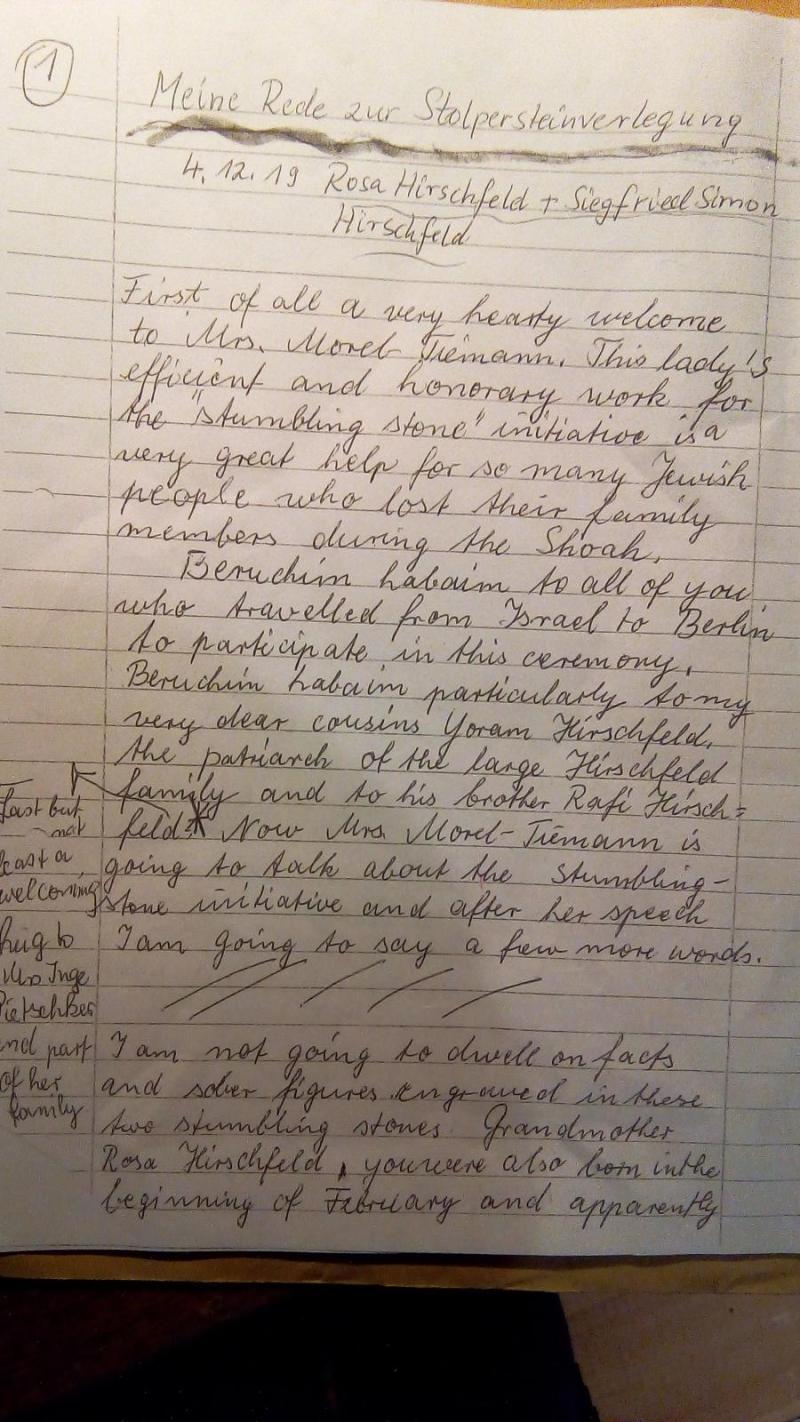 1
Meine Rede zur Stolpersteinverlegung
4.12.19 Rosa Hirschfeld + Siegfried Simon
Hirschfeld
First of all a very hearty welcome
to Mrs. Morel-Tiemann. This lady's
efficient and honorary work for
the "stumbling stone" initiative is a
very great help for so many Jewish
people who lost their family
members during the Shoah.
Beruchim habaim to all of you
who travelled from Israel to Berlin
to participate in this ceremony.
Beruchim habaim particularly to my
very dear cousins Yoram Hirschfeld,
the patriarch of the large Hirschfeld
family and to his brother Rafi Hirsch=
feld. Now Mrs. Morel-Tiemann is
going to talk about the stumbling-
stone initiative and after her speech
I am going to say a few more words.
Last but
not
least a
welcoming
hug to
Mrs Inge
and part
of her
family
I am not going to dwell on facts
and sober figures engraved in these
two stumbling stones. Grandmother
Rosa Hirschfeld, you were also born in the
beginning of February and apparently